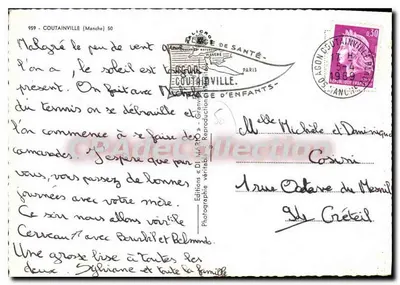 959 - COUTAINVILLE (Manche) 50
Malgré le peu de vent que
l'on a, le soleil est toujours
présent. On fait avec Michel
du tennis on se défoule et
l'on commence à se faire des
camarades. J'espère que pour
vous, vous passez de bonnes
journées avec votre mère.
Ce soir nous allons voir "le
Cerveau" avec Bourvil et Belmondo
Une grosse bise à toutes les
deux. Sylviane et toute la famille
PLAGE DE SANTÉ
PARIS
COUTAINVILLE
PLAGE D'ENFANTS
AGON COUTAINVILLE
1969
MANCHE
0,30
Melle Michèle et Dominique
Cosini
1 rue Octave du Mesnil
94 Créteil